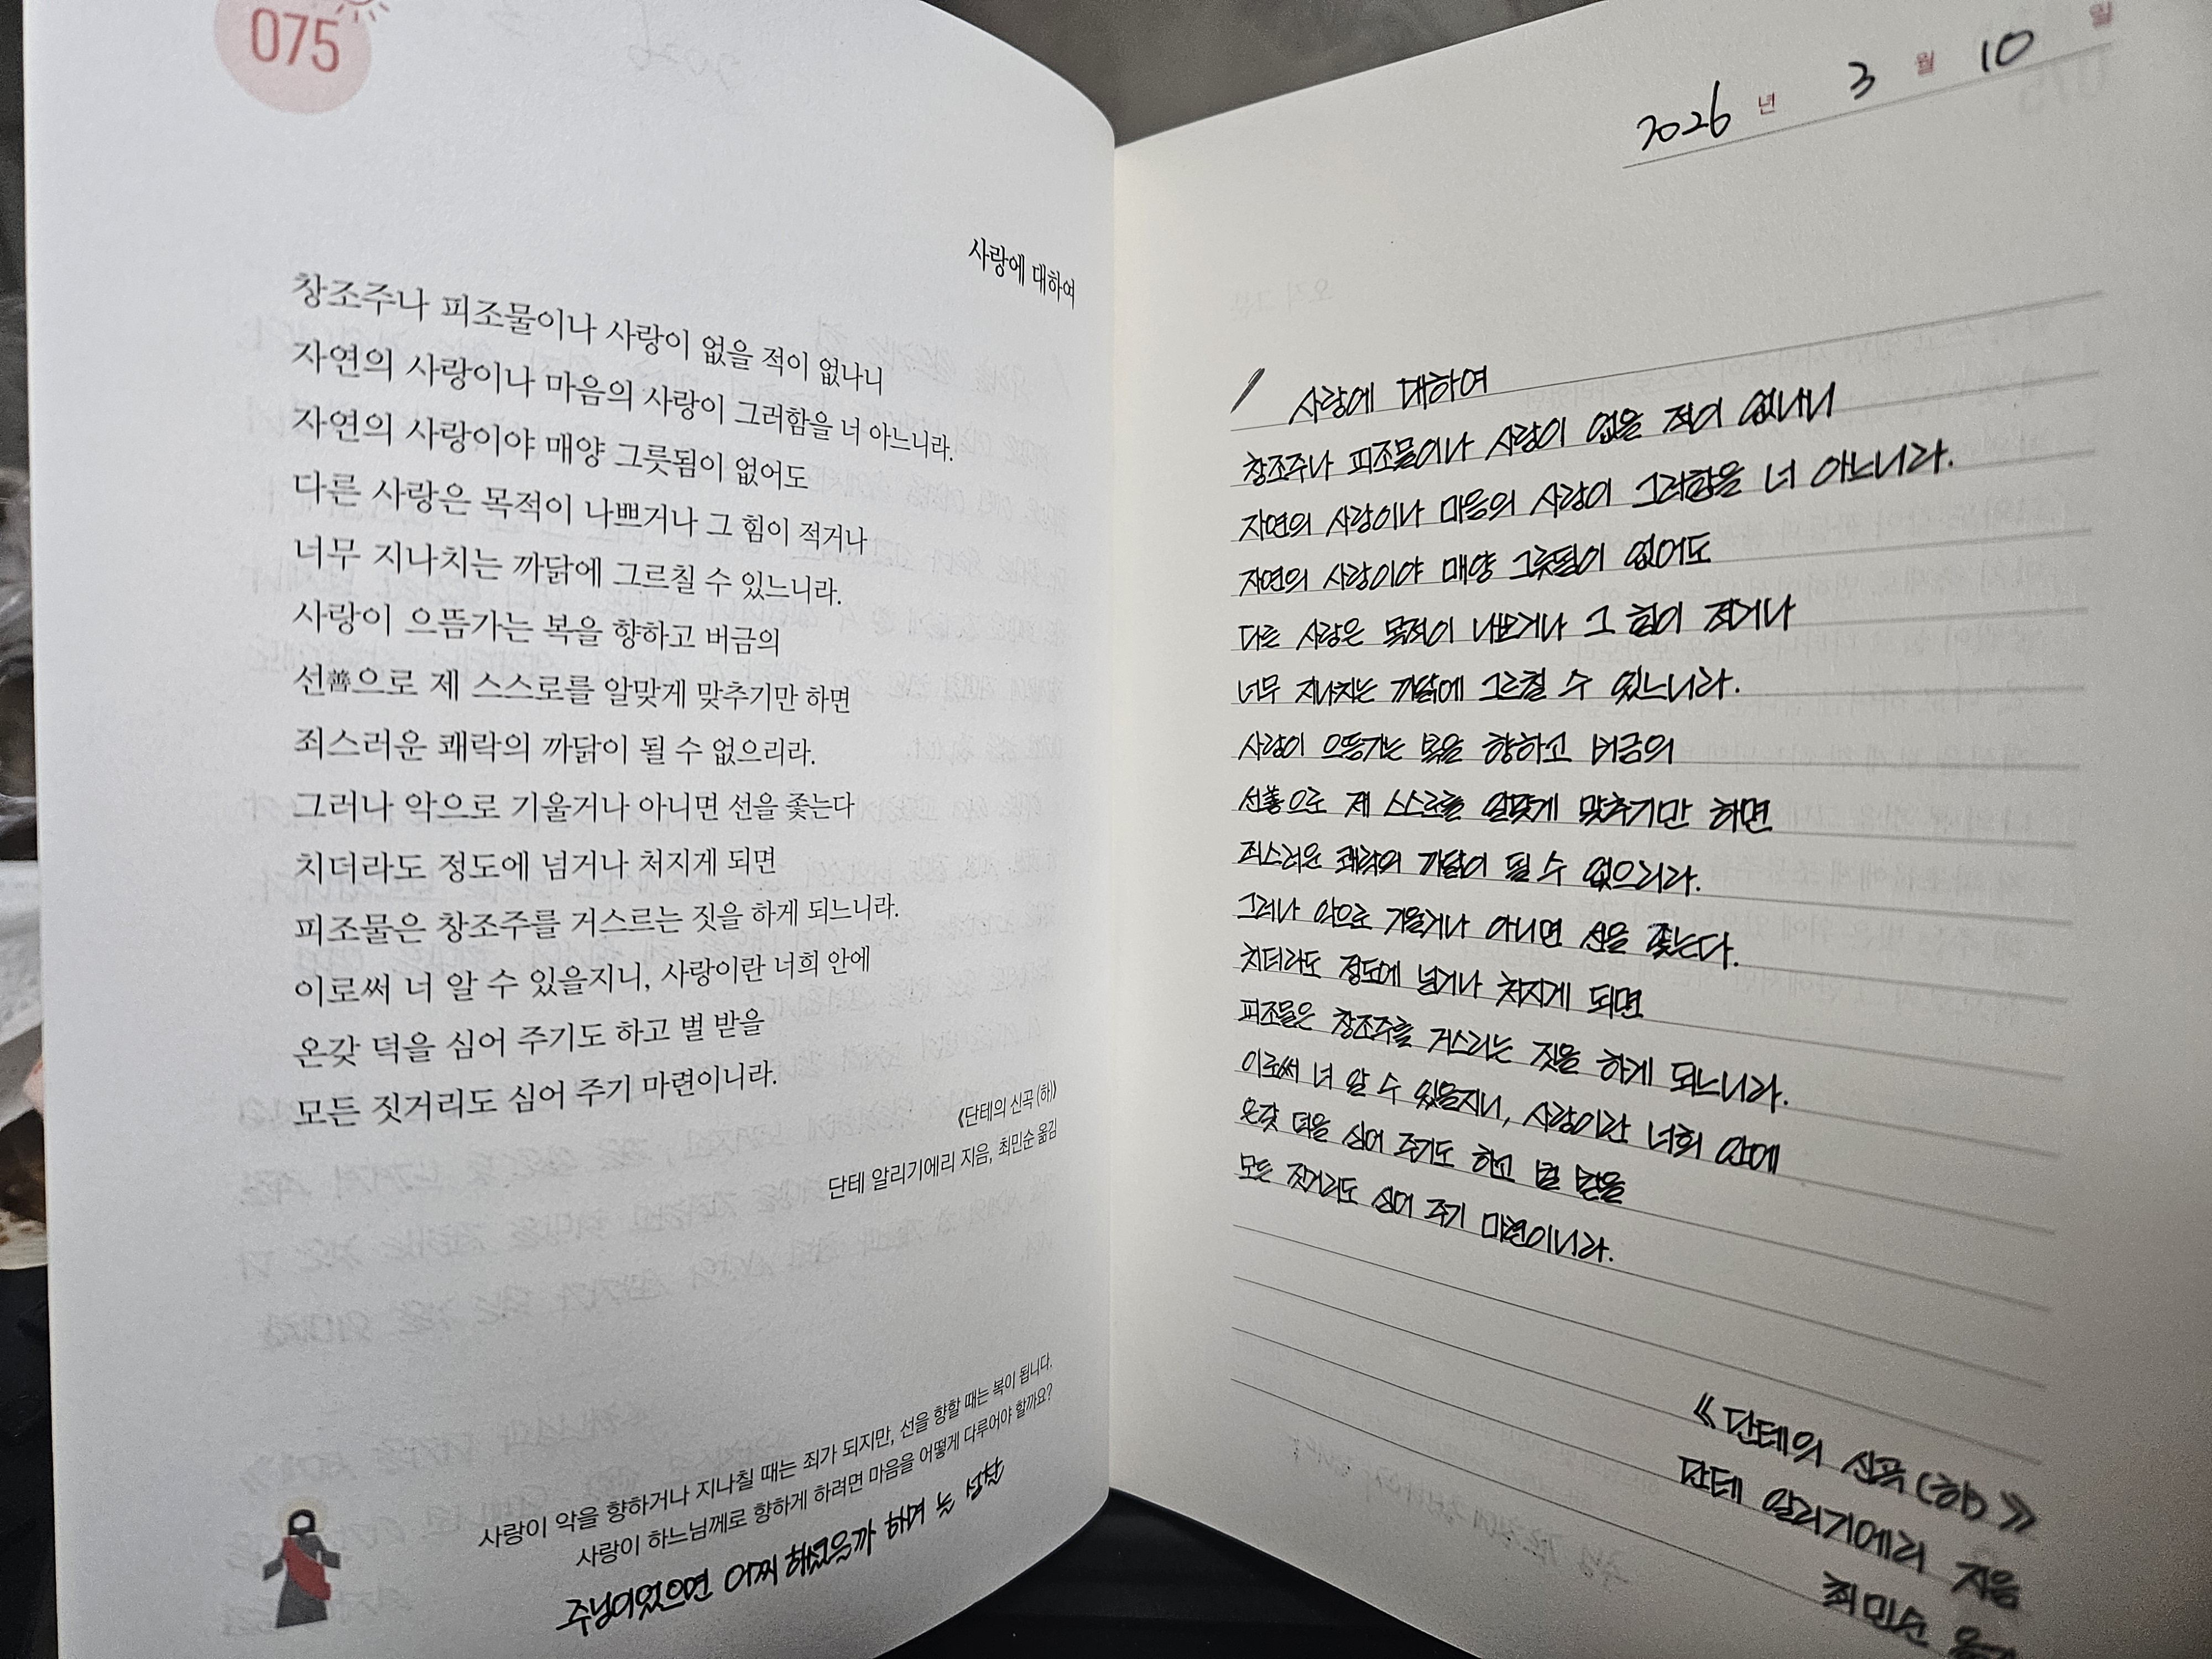 075
사랑에 대하여
창조주나 피조물이나 사랑이 없을 적이 없나니
자연의 사랑이나 마음의 사랑이 그러함을 너 아느니라.
자연의 사랑이야 매양 그릇됨이 없어도
다른 사랑은 목적이 나쁘거나 그 힘이 적거나
너무 지나치는 까닭에 그르칠 수 있느니라.
사랑이 으뜸가는 복을 향하고 버금의
선善으로 제 스스로를 알맞게 맞추기만 하면
죄스러운 쾌락의 까닭이 될 수 없으리라.
그러나 악으로 기울거나 아니면 선을 좇는다
치더라도 정도에 넘거나 처지게 되면
피조물은 창조주를 거스르는 짓을 하게 되느니라.
이로써 너 알 수 있을지니, 사랑이란 너희 안에
온갖 덕을 심어 주기도 하고 벌 받을
모든 짓거리도 심어 주기 마련이니라.
《단테의 신곡 (하)》
단테 알리기에리 지음, 최민순 옮김
사랑이 악을 향하거나 지나칠 때는 죄가 되지만, 선을 향할 때는 복이 됩니다.
사랑이 하느님께로 향하게 하려면 마음을 어떻게 다루어야 할까요?
주님이었으면 어찌 하셨을까 하며
2026 년 3 월 10 일
사랑에 대하여
창조주나 피조물이나 사랑이 없을 적이 없나니
자연의 사랑이나 마음의 사랑이 그러함을 너 아느니라.
자연의 사랑이야 매양 그릇됨이 없어도
다른 사랑은 목적이 나쁘거나 그 힘이 적거나
너무 지나치는 까닭에 그르칠 수 있느니라.
사랑이 으뜸가는 복을 향하고 버금의
선善으로 제 스스로를 알맞게 맞추기만 하면
죄스러운 쾌락의 까닭이 될 수 없으리라.
그러나 악으로 기울거나 아니면 선을 좇는다.
치더라도 정도에 넘거나 처지게 되면
피조물은 창조주를 거스르는 짓을 하게 되느니라.
이로써 너 알 수 있을지니, 사랑이란 너희 안에
온갖 덕을 심어 주기도 하고 벌 받을
모든 짓거리도 심어 주기 마련이니라.
《단테의 신곡 (하)》
단테 알리기에리 지음
최민순